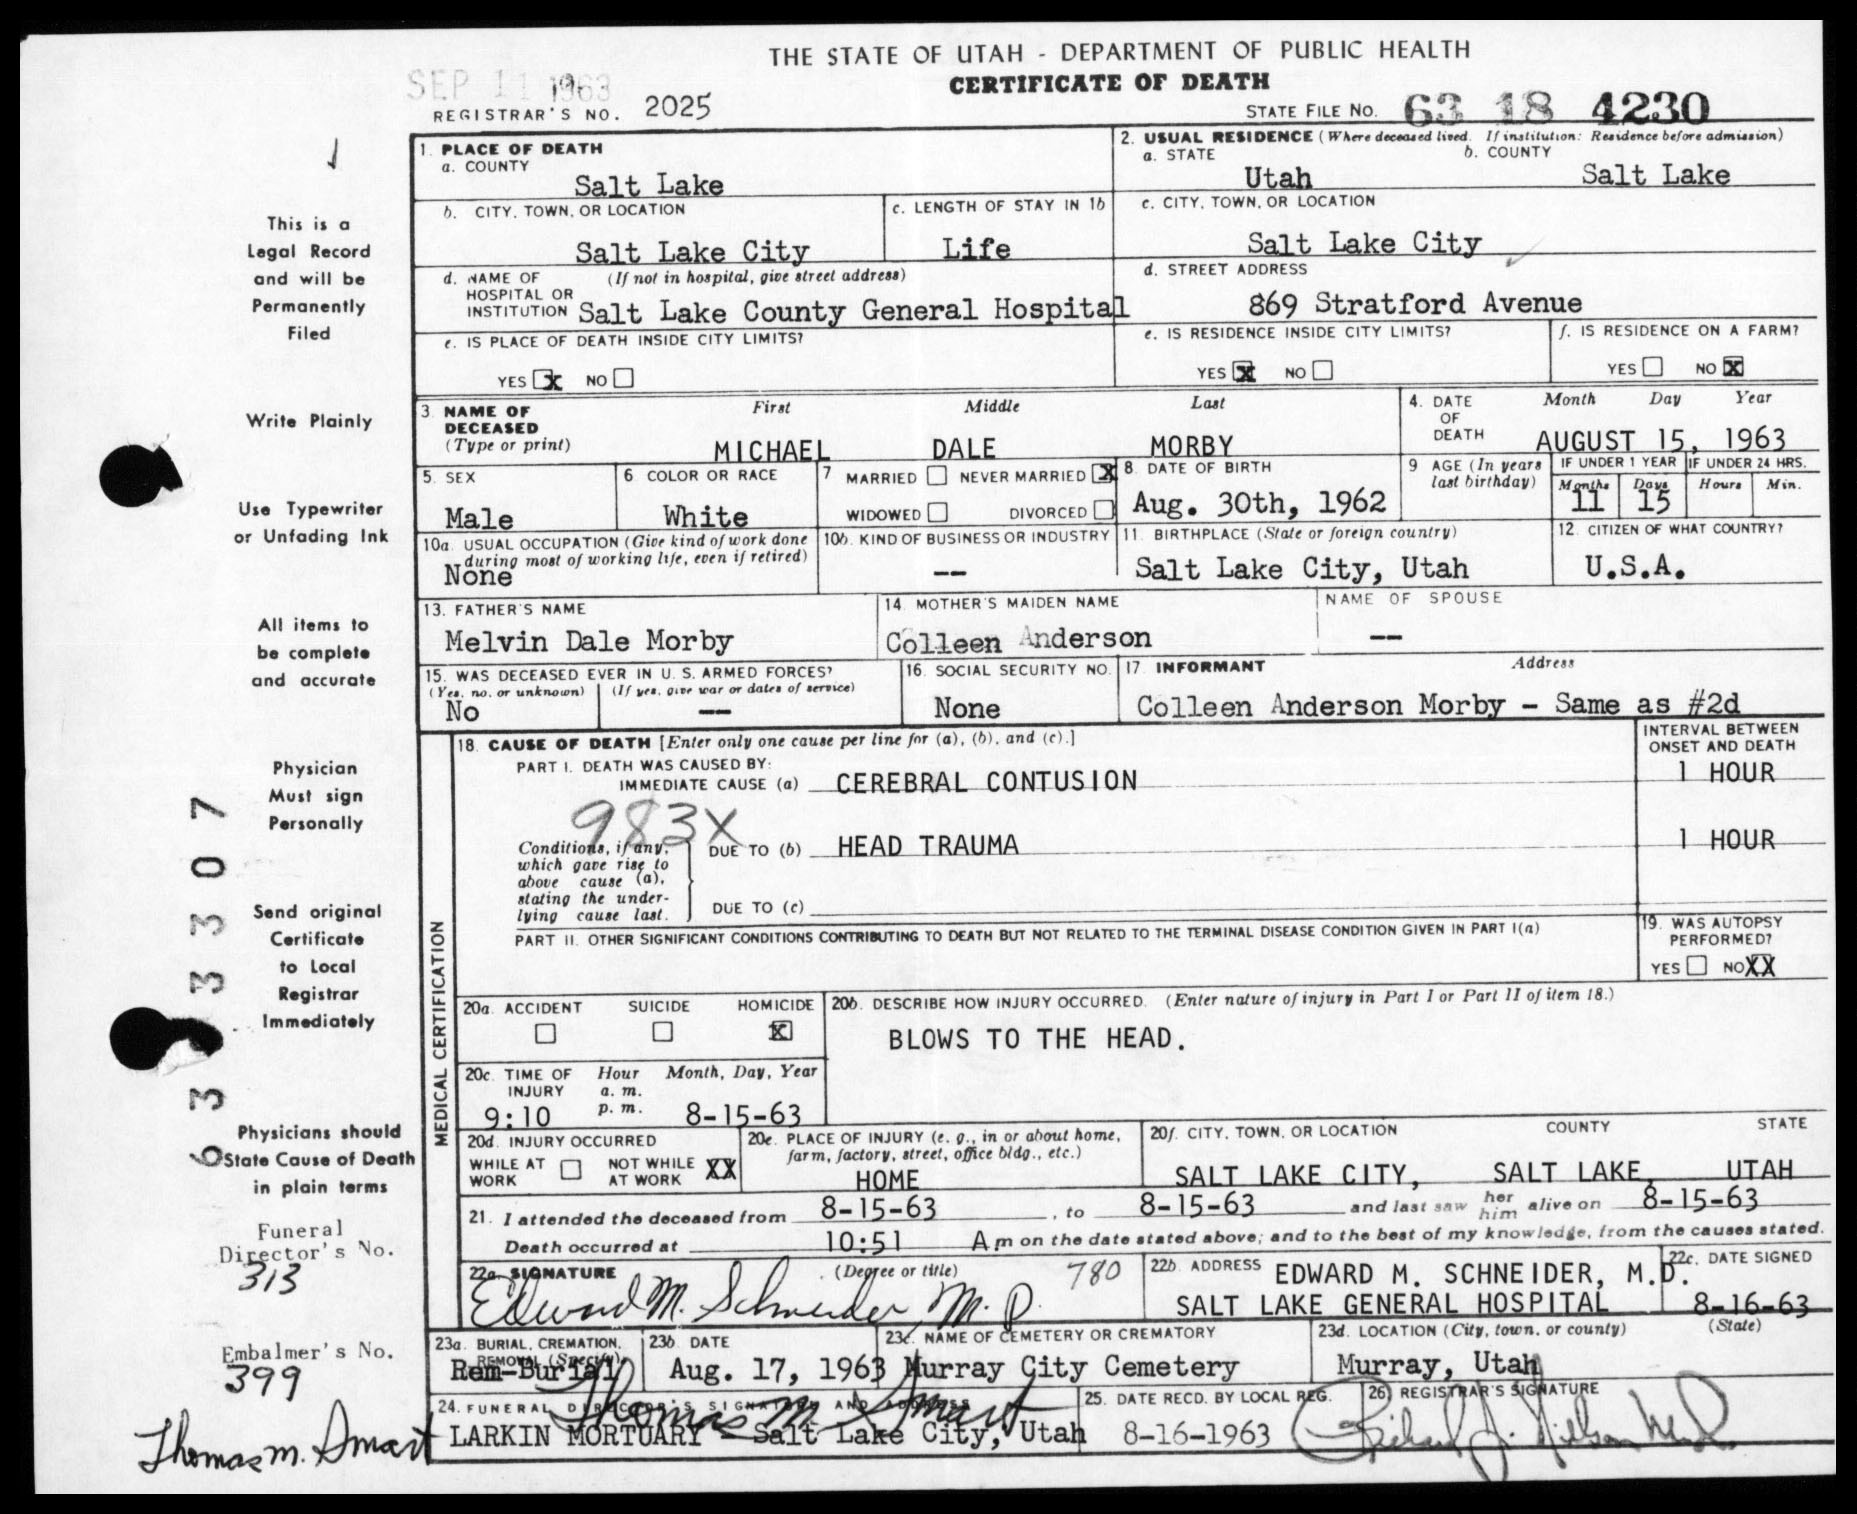 THE STATE OF UTAH - DEPARTMENT OF PUBLIC HEALTH
CERTIFICATE OF DEATH
SEP 11 1963
REGISTRAR'S NO. 2025
STATE FILE NO. 63 18 4230
1. PLACE OF DEATH
a. COUNTY
Salt Lake
2. USUAL RESIDENCE (Where deceased lived. If institution: Residence before admission)
a. STATE b. COUNTY
Utah Salt Lake
b. CITY, TOWN, OR LOCATION
Salt Lake City
c. LENGTH OF STAY IN 1b
Life
c. CITY, TOWN, OR LOCATION
Salt Lake City
d. NAME OF HOSPITAL OR INSTITUTION (If not in hospital, give street address)
Salt Lake County General Hospital
d. STREET ADDRESS
869 Stratford Avenue
e. IS PLACE OF DEATH INSIDE CITY LIMITS?
YES X NO
e. IS RESIDENCE INSIDE CITY LIMITS?
YES X NO
f. IS RESIDENCE ON A FARM?
YES NO X
3. NAME OF DECEASED (Type or print)
First Middle Last
MICHAEL DALE MORBY
4. DATE OF DEATH
Month Day Year
AUGUST 15, 1963
5. SEX
Male
6 COLOR OR RACE
White
7 MARRIED NEVER MARRIED X
WIDOWED DIVORCED
8. DATE OF BIRTH
Aug. 30th, 1962
9 AGE (In years last birthday)
IF UNDER 1 YEAR IF UNDER 24 HRS.
Months Days Hours Min.
11 15
10a. USUAL OCCUPATION (Give kind of work done during most of working life, even if retired)
None
10b. KIND OF BUSINESS OR INDUSTRY
--
11. BIRTHPLACE (State or foreign country)
Salt Lake City, Utah
12. CITIZEN OF WHAT COUNTRY?
U.S.A.
13. FATHER'S NAME
Melvin Dale Morby
14. MOTHER'S MAIDEN NAME
Colleen Anderson
NAME OF SPOUSE
--
15. WAS DECEASED EVER IN U. S. ARMED FORCES?
(Yes, no, or unknown) (If yes, give war or dates of service)
No --
16. SOCIAL SECURITY NO.
None
17. INFORMANT Address
Colleen Anderson Morby - Same as #2d
MEDICAL CERTIFICATION
18. CAUSE OF DEATH [Enter only one cause per line for (a), (b), and (c).]
INTERVAL BETWEEN ONSET AND DEATH
PART I. DEATH WAS CAUSED BY:
IMMEDIATE CAUSE (a) CEREBRAL CONTUSION 1 HOUR
983X
Conditions, if any, which gave rise to above cause (a), stating the underlying cause last.
DUE TO (b) HEAD TRAUMA 1 HOUR
DUE TO (c)
PART II. OTHER SIGNIFICANT CONDITIONS CONTRIBUTING TO DEATH BUT NOT RELATED TO THE TERMINAL DISEASE CONDITION GIVEN IN PART I(a)
19. WAS AUTOPSY PERFORMED?
YES NO XX
20a. ACCIDENT SUICIDE HOMICIDE
X
20b. DESCRIBE HOW INJURY OCCURRED. (Enter nature of injury in Part I or Part II of item 18.)
BLOWS TO THE HEAD.
20c. TIME OF INJURY Hour Month, Day, Year
a. m.
p. m.
9:10 8-15-63
20d. INJURY OCCURRED
WHILE AT WORK NOT WHILE AT WORK XX
20e. PLACE OF INJURY (e. g., in or about home, farm, factory, street, office bldg., etc.)
HOME
20f. CITY, TOWN, OR LOCATION COUNTY STATE
SALT LAKE CITY, SALT LAKE, UTAH
21. I attended the deceased from 8-15-63, to 8-15-63 and last saw her him alive on 8-15-63
Death occurred at 10:51 A m on the date stated above; and to the best of my knowledge, from the causes stated.
22a. SIGNATURE (Degree or title)
Edward M. Schneider, M. D. 780
22b. ADDRESS EDWARD M. SCHNEIDER, M.D.
SALT LAKE GENERAL HOSPITAL
22c. DATE SIGNED
8-16-63
23a. BURIAL, CREMATION, REMOVAL (Specify)
Rem-Burial
23b. DATE
Aug. 17, 1963
23c. NAME OF CEMETERY OR CREMATORY
Murray City Cemetery
23d. LOCATION (City, town, or county) (State)
Murray, Utah
24. FUNERAL DIRECTOR'S SIGNATURE AND ADDRESS
Thomas M. Smart
LARKIN MORTUARY - Salt Lake City, Utah
25. DATE RECD. BY LOCAL REG.
8-16-1963
26 REGISTRAR'S SIGNATURE
This is a
Legal Record
and will be
Permanently
Filed
Write Plainly
Use Typewriter
or Unfading Ink
All items to
be complete
and accurate
Physician
Must sign
Personally
Send original
Certificate
to Local
Registrar
Immediately
Physicians should
State Cause of Death
in plain terms
Funeral
Director's No.
313
Embalmer's No.
399
Thomas M. Smart
6333307